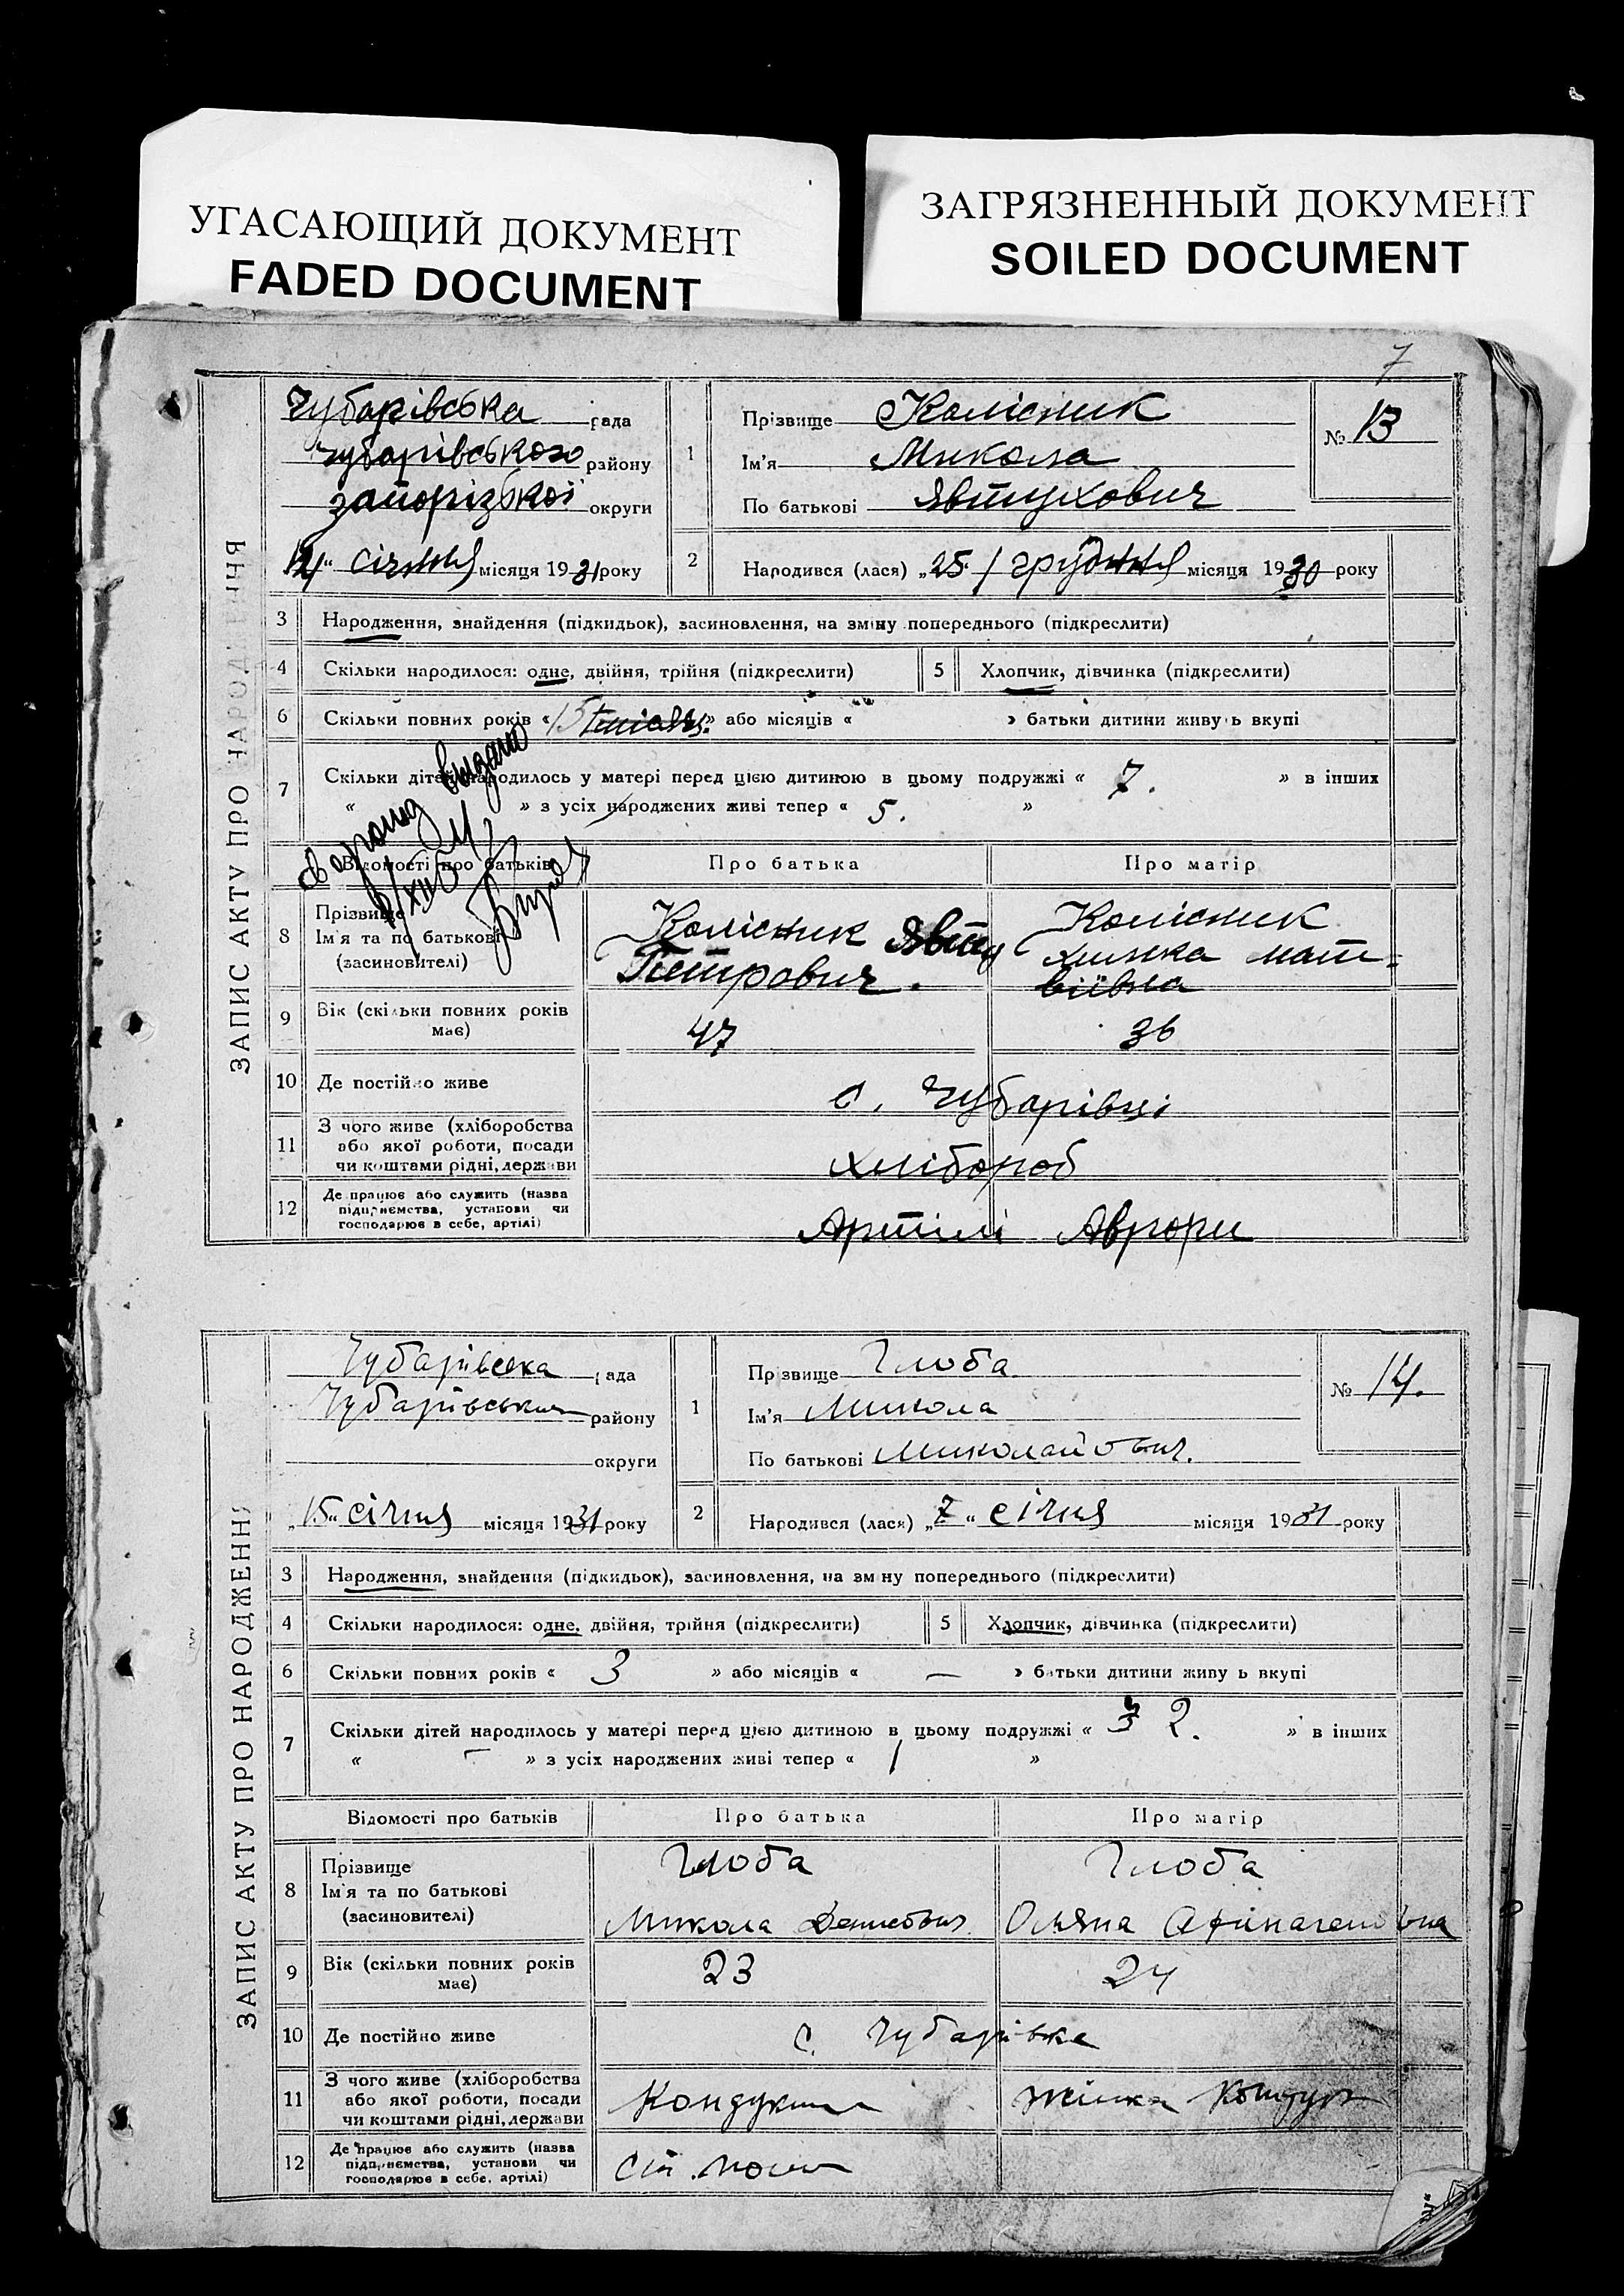 УГАСАЮЩИЙ ДОКУМЕНТ
FADED DOCUMENT
ЗАГРЯЗНЕННЫЙ ДОКУМЕНТ
SOILED DOCUMENT
7
ЗАПИС АКТУ ПРО НАРОДЖЕННЯ
Чубарівська рада
Чубарівського району
Запорізької округи
14 січня місяця 1931 року
1
Прізвище Колісник
Ім'я Микола
По батькові Явтухович
№ 13
2
Народився (лася) „25 грудння місяця 1930 року
3 Народження, знайдення (підкидьок), засиновлення, на зміну попереднього (підкреслити)
4 Скільки народилося: одне, двійня, трійня (підкреслити)
5 Хлопчик, дівчинка (підкреслити)
6 Скільки повних років « 15 » або місяців « » батьки дитини живуть вкупі
7 Скільки дітей народилось у матері перед цією дитиною в цьому подружжі « 7. » в інших
« » з усіх народжених живі тепер « 5. »
Відомості про батьків
Про батька
Про матір
8 Прізвище
Ім'я та по батькові
(засновителі)
Колісник Явту
Петрович.
Колісник
Химка Мат-
віївна
9 Вік (скільки повних років
має)
47
36
10 Де постійно живе
с. Чубарівці
11 З чого живе (хліборобства
або якої роботи, посади
чи коштами рідні, держави
Хлібороб
12 Де працює або служить (назва
підприємства, установи чи
господарює в себе, артілі)
Артілі Аврори
ЗАПИС АКТУ ПРО НАРОДЖЕННЯ
Чубарівська рада
Чубарівський району
округи
„15" січня місяця 1931 року
1
Прізвище Глоба
Ім'я Микола
По батькові Миколайович.
№ 14.
2
Народився (лася) „7" січня місяця 1931 року
3 Народження, знайдення (підкидьок), засиновлення, на зміну попереднього (підкреслити)
4 Скільки народилося: одне, двійня, трійня (підкреслити)
5 Хлопчик, дівчинка (підкреслити)
6 Скільки повних років « 3 » або місяців « — » батьки дитини живуть вкупі
7 Скільки дітей народилось у матері перед цією дитиною в цьому подружжі « 2. » в інших
« — » з усіх народжених живі тепер « 1 »
Відомості про батьків
Про батька
Про матір
8 Прізвище
Ім'я та по батькові
(засиновителі)
Глоба
Микола Денисович
Глоба
Оляна
9 Вік (скільки повних років
має)
23
24
10 Де постійно живе
с. Чубарівка
11 З чого живе (хліборобства
або якої роботи, посади
чи коштами рідні, держави
Кондукт
жінка кондук
12 Де працює або служить (назва
підприємства, установи чи
господарює в себе, артілі)